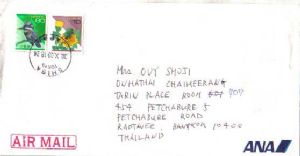 Mrs OVY SHOJI
ONHATHAI CHAIMEERANG
TARIN PLACE ROOM
454 PETCHABURE 5
PETCHABURE ROAD
RADTAVEE BANGKOK 10400
THAILAND
AIR MAIL
ANA